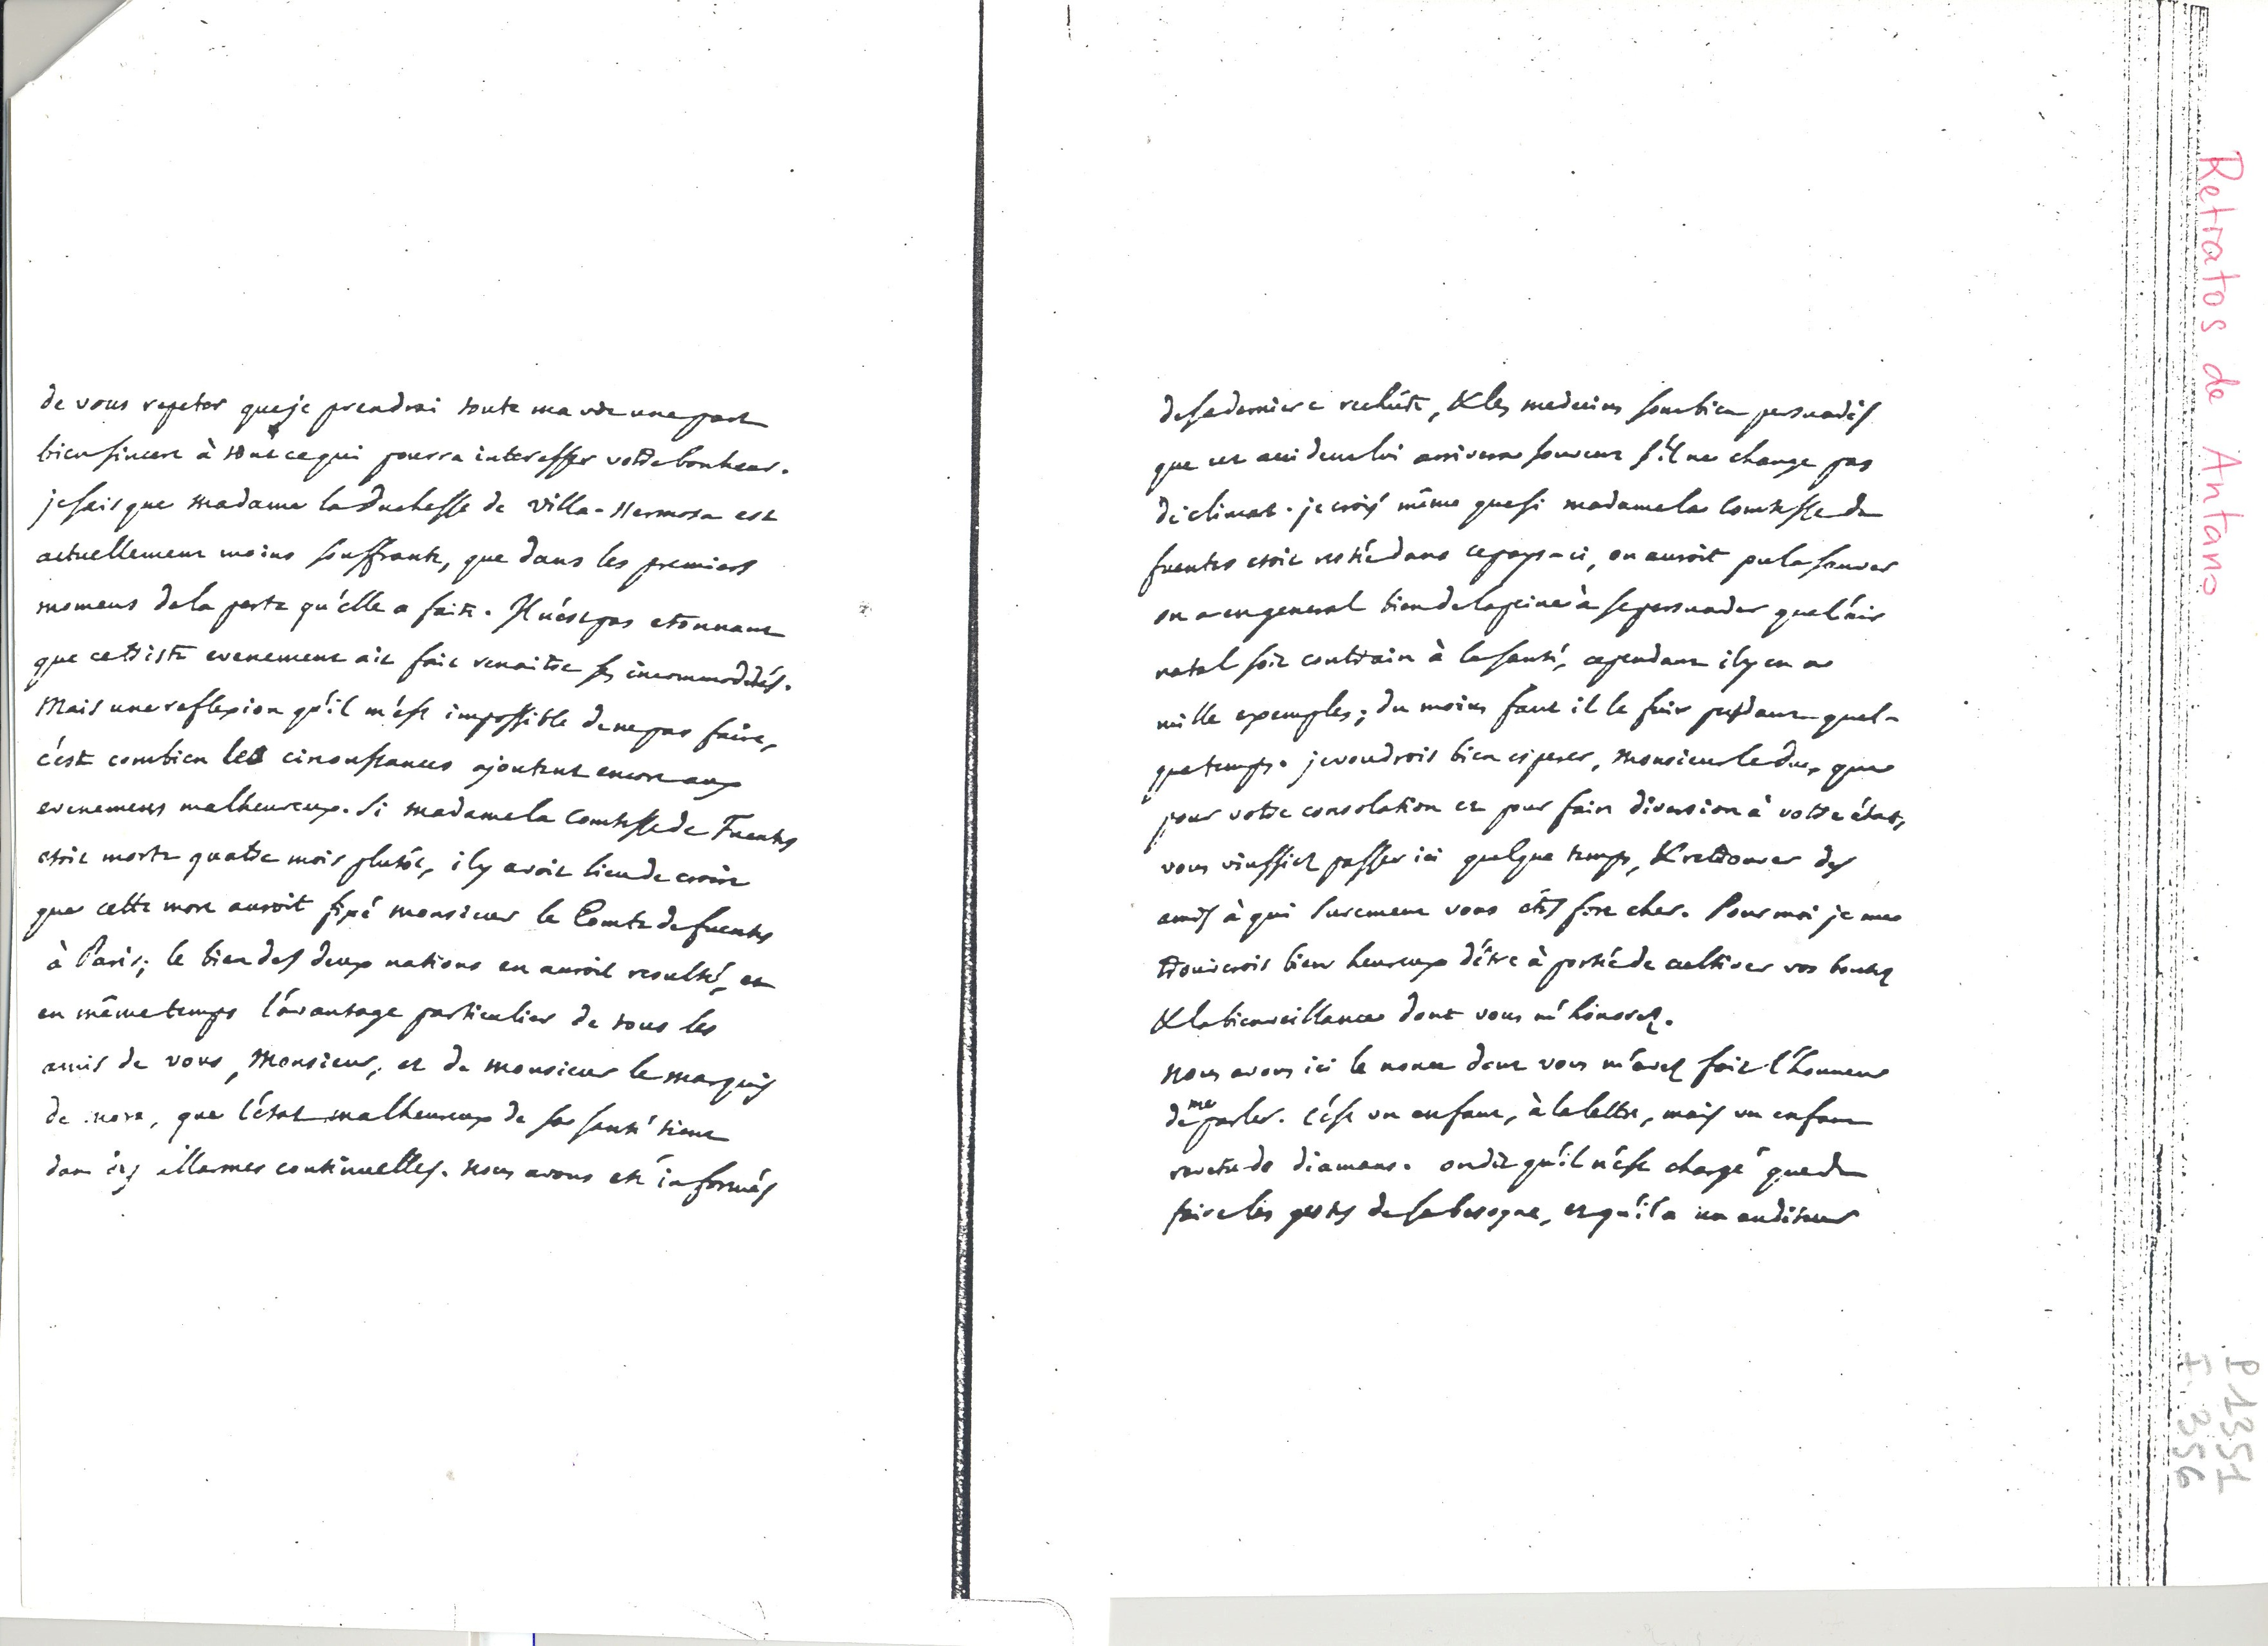 de vous repeter que je prendrai toute ma vie une part
bien sincere à tout ce qui pourra interesser votre bonheur.
je sais que madame la Duchesse de Villa-Hermosa est
actuellement moins souffrante, que dans les premiers
momens de la perte qu'elle a faite. Il n'est pas etonnant
que ce triste evenement ait fait renaitre ses incommodités.
Mais une reflexion qu'il m'est impossible de ne pas faire,
c'est combien les circonstances ajoutent encore aux
evenemens malheureux. Si madame la Comtesse de Fuentes
etoit morte quatre mois plutôt, il y avoit lieu de croire
que cette mort auroit fixé monsieur le Comte de fuentes
à Paris; le bien des deux nations en auroit resulté, et
en même temps l'avantage particulier de tous les
amis de vous, Monsieur, et de monsieur le marquis
de mora, que l'état malheureux de sa santé tient
dans des allarmes continuelles. nous avons eté informés
de sa derniere rechûte, & les medecins sont bien persuadés
que cet accident lui arrivera souvent s'il ne change pas
de climat. je crois même que si madame la Comtesse de
fuentes etoit restée dans ce pays-ci, on auroit pu la sauver
on a en general bien de la peine à se persuader que l'air
natal soit contraire à la santé, cependant il y en a
mille exemples; du moins faut il le fuir pendant quel-
que temps. je voudrois bien esperer, Monsieur le Duc, que
pour votre consolation et pour faire diversion à votre état,
vous vinssiez passer ici quelque temps, & retrouver des
amis à qui surement vous êtes fort cher. Pour moi je me
trouverois bien heureux d'être à portée de cultiver vos bontés
& la bienveillance dont vous m'honorez.
nous avons ici le nonce dont vous m'avez fait l'honneur
de me parler. c'est un enfant, à la lettre, mais un enfant
revetu de diamans. on dit qu'il n'est chargé que de
faire les gestes de sa besogne, et qu'il a un auditeur
Retratos de Antano
P 1351
I. 356